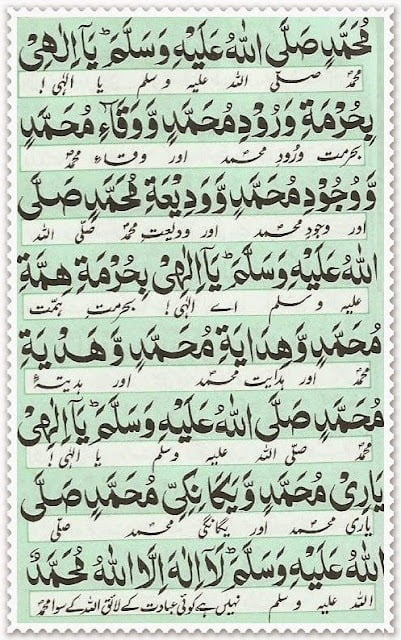 مُحَمَّدٍ صَلَّى اللهُ عَلَيْهِ وَسَلَّمَ ؕ يَآ اِلٰهِيْ
محمد صلی اللہ علیہ وسلم یا الٰہی!
بِحُرْمَةِ وَرُوْدِ مُحَمَّدٍ وَّوَقَآءِ مُحَمَّدٍ
بحرمت ورُودِ محمد اور وقاء محمد
وَّوُجُوْدِ مُحَمَّدٍ وَّوَدِيْعَةِ مُحَمَّدٍ صَلَّى
اور وجودِ محمد اور ودیعتِ محمد صلی اللہ
اللهُ عَلَيْهِ وَسَلَّمَ ؕ يَآ اِلٰهِيْ بِحُرْمَةِ هِمَّةِ
علیہ وسلم اے الٰہی! بحرمت ہمّت
مُحَمَّدٍ وَّهِدَايَةِ مُحَمَّدٍ وَّهَدْيَةِ
محمد اور ہدایت محمد اور ہدیۂ
مُحَمَّدٍ صَلَّى اللهُ عَلَيْهِ وَسَلَّمَ ؕ يَآ اِلٰهِيْ
محمد صلی اللہ علیہ وسلم یا الٰہی!
يَارِئِ مُحَمَّدٍ وَّيَگَانِگِيِّ مُحَمَّدٍ صَلَّى
یاریٔ محمد اور یگانگی محمد صلی
اللهُ عَلَيْهِ وَسَلَّمَ ؕ لَآ اِلٰهَ اِلَّا اللهُ مُحَمَّدٌ
اللہ علیہ وسلم نہیں ہے کوئی عبادت کے لائق اللہ کے سوا محمد